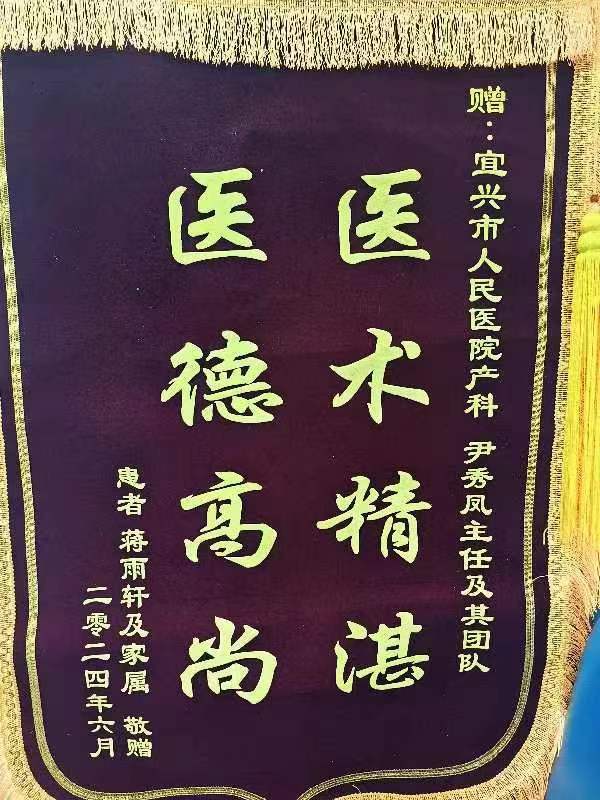 赠：宜兴市人民医院产科 尹秀凤主任及其团队
医术精湛
医德高尚
患者 蒋雨轩及家属 敬赠
二零二四年六月